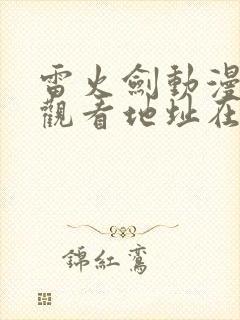 雷火劍動漫
觀看地址在
錦紅鸞